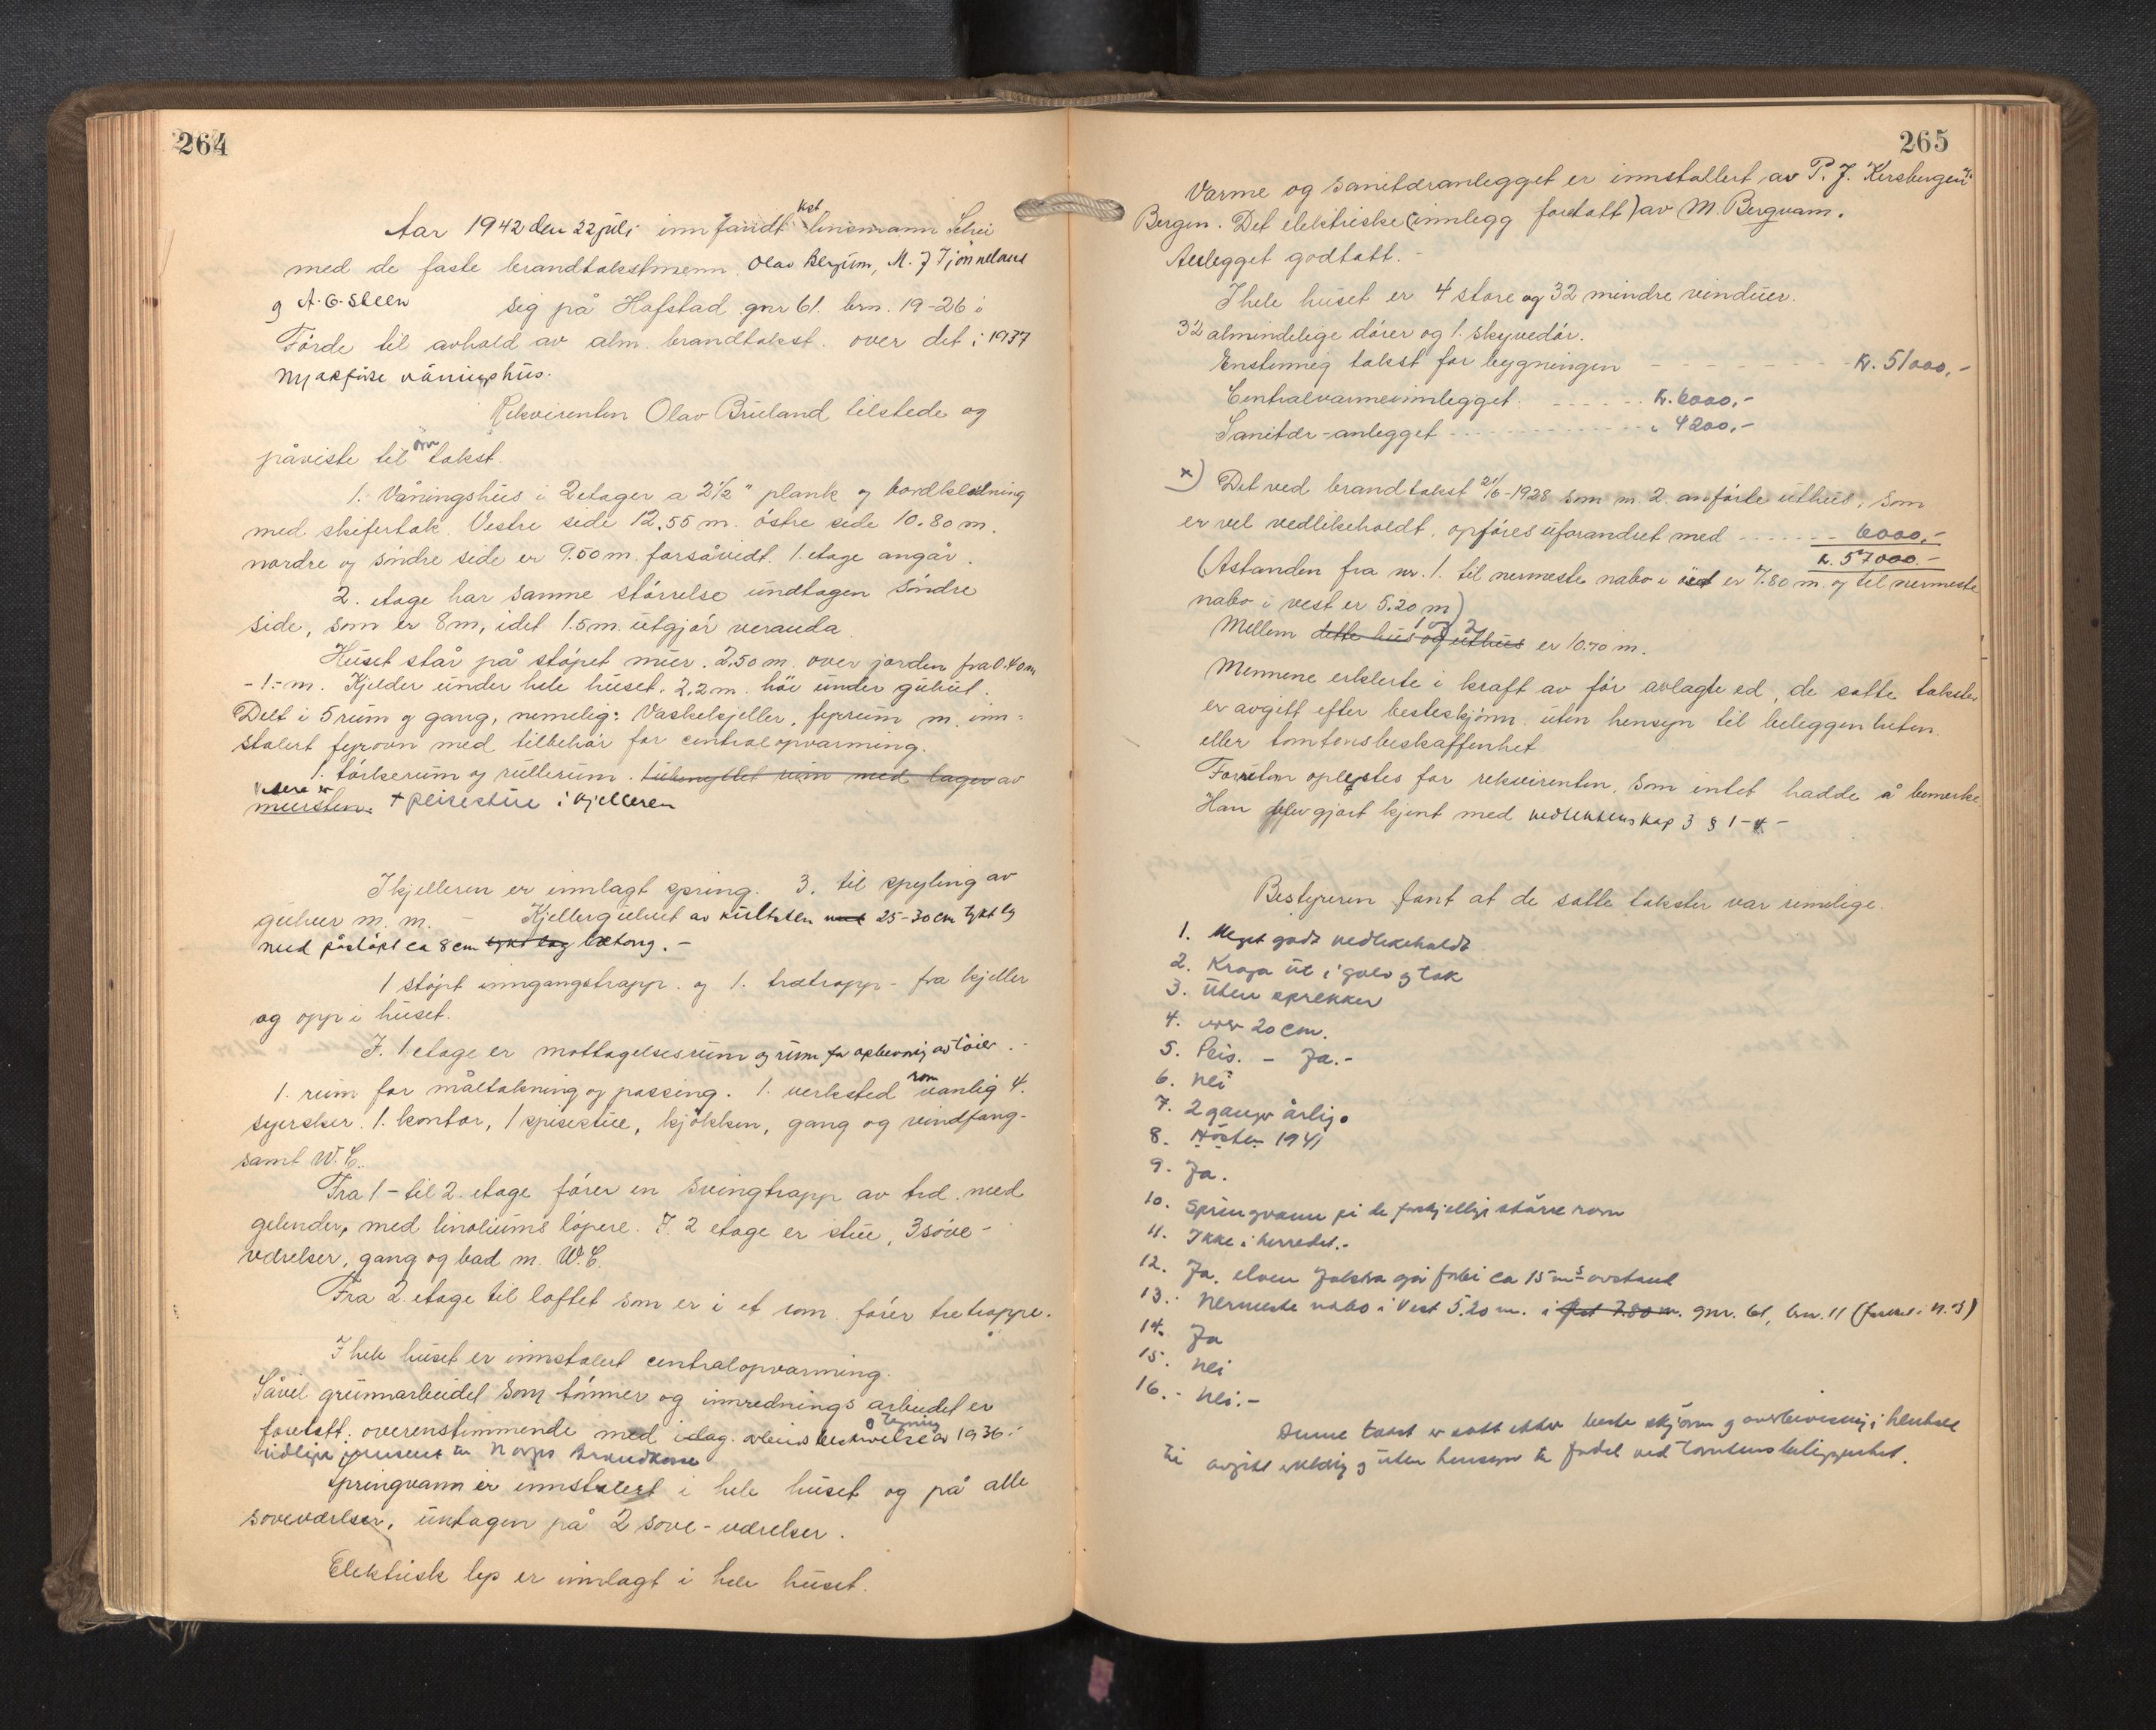 264
Aar 1942 den 22 juli innfandt kst lensmann Schei
med de faste brandtakstmenn Olav Bergum, M. J Tjønneland
og A. G. Steen sig på Hafstad gnr 61. brn. 19-26 i
Förde til avhold av alm. brandtakst. over det i 1937
nyopförte våningshus.
Rekvirenten Olav Bruland tilstede og
påviste til omtakst.
1. Våningshus i 2 etager a 2½" plank og bordkledning
med skifertak. Vestre side 12.55 m. östre side 10.80 m.
nordre og söndre side er 9.50 m. forsåvidt. 1. etage angår.
2. etage har samme störrelse undtagen söndre
side, som er 8 m, idet 1.5 m. utgjör veranda.
Huset står på stöpet mur. 2.50 m. over jorden fra 0.40 m
- 1.- m. Kjelder under hele huset. 2.2 m. höi under gulvet.
Delt i 5 rum og gang, nemelig: Vaskekjeller, fyrrum m. inn-
stalert fyrovn med tilbehör for centralopvarming.
1. törkerum og rullerum. rum med lager av
mursten. + peisestue i kjelleren
I kjelleren er innlagt spring. 3. til spyling av
gulver m. m. - Kjellergulvet av kultsten med 25-30 cm tykt lag
med påstöpt ca 8 cm tykt lag betong. -
1 stöpt inngangstrapp. og 1. tretrapp - fra kjeller
og opp i huset.
I. 1. etage er mottagelsesrum og rum for opbevaring av töier. -
1. rum for måltakning og passing. 1. verksted rom vanlig 4.
syersker. 1. kontor, 1 spisestue, kjökken, gang og vindfang-
samt W. C.
Fra 1 - til 2. etage förer en svingtrapp av tre. med
gelender, med linoliums löpere. I. 2 etage er stue, 3 sove-
værelser, gang og bad m. W. C.
Fra 2. etage til loftet som er i et rom. förer tretrappe.
I hele huset er innstalert centralopvarming.
Såvel grunnarbeidet som tömmer og innrednings arbeidet er
foretatt. overenstimmende med idag. arbeidsbeskrivelse og tegning av 1936. -
tidligere innsent til Norges Brandkasse
Springvann er innstalert i hele huset og på alle
soveværelser, untagen på 2 sove-værelser.
Elektrisk lys er innlagt i hele huset.
265
Varme og sanitæranlegget er innstallert av P. J. Kersbergen
Bergen. Det elektriske (innlegg foretatt) av M. Bergvam.
Anlegget godtatt. -
I hele huset er 4 store og 32 mindre vinduer.
32 almindelige dörer og 1. skyvedör.
Enstemmig takst for bygningen - - - - - - - kr. 51000,-
Centralvarmeinnlegget. - - - - - kr. 6000,-
Sanitær-anlegget - - - - - - - - - - " 4200,-
x) Det ved brandtakst 21/6-1928 som nr. 2. anförte uthus, som
er vel vedlikeholdt, opföres uforandret med - - - - - - 6000,-
kr. 57000.-
(Astanden fra nr. 1. til nermeste nabo i öst er 7.80 m. og til nermeste
nabo i vest er 5.20 m)
Mellem dette hus og uthus 1 og 2 er 10.70 m.
Mennene erklerte i kraft av för avlagte ed, de satte takster
er avgitt efter besteskjönn. uten hensyn til beleggenheten
eller tomtens beskaffenhet.
Foruten oplestes for rekvirenten, som intet hadde å bemerke.
Han blev gjort kjent med § 1 - 4 -
Bestyreren fant at de satte takster var rimelige.
1. Meget godt vedlikeholdt
2. Kraga ut i golv og tak
3. Uten sprekker
4. over 20 cm.
5. Peis. - Ja.-
6. Nei
7. 2 ganger årlig.
8. Hösten 1941
9. Ja.
10. Springvann på de forskjellige större rom
11. Ikke i herredet.-
12. Ja. elven Jölstra går forbi ca 15 m s avstand
13. Nermeste nabo i Vest 5.20 m. i öst 7.80 m. gnr. 61, brn. 11
14. Ja
15. Nei
16. - Nei.-
Denne takst er satt etter beste skjönn og overbevisning i henhold
til avgitt erklæring og uten hensyn til fordel ved tomtens beliggenhet.